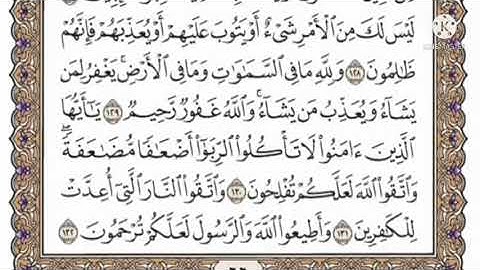 لَيْسَ لَكَ مِنَ ٱلْأَمْرِ شَىْءٌ أَوْ يَتُوبَ عَلَيْهِمْ أَوْ يُعَذِّبَهُمْ فَإِنَّهُمْ
ظَٰلِمُونَ ١٢٨ وَلِلَّهِ مَا فِى ٱلسَّمَٰوَٰتِ وَمَا فِى ٱلْأَرْضِ ۚ يَغْفِرُ لِمَن
يَشَآءُ وَيُعَذِّبُ مَن يَشَآءُ ۚ وَٱللَّهُ غَفُورٌ رَّحِيمٌ ١٢٩ يَٰٓأَيُّهَا
ٱلَّذِينَ ءَامَنُوا۟ لَا تَأْكُلُوا۟ ٱلرِّبَوٰٓا۟ أَضْعَٰفًا مُّضَٰعَفَةً ۖ
وَٱتَّقُوا۟ ٱللَّهَ لَعَلَّكُمْ تُفْلِحُونَ ١٣٠ وَٱتَّقُوا۟ ٱلنَّارَ ٱلَّتِىٓ أُعِدَّتْ
لِلْكَٰفِرِينَ ١٣١ وَأَطِيعُوا۟ ٱللَّهَ وَٱلرَّسُولَ لَعَلَّكُمْ تُرْحَمُونَ ١٣٢